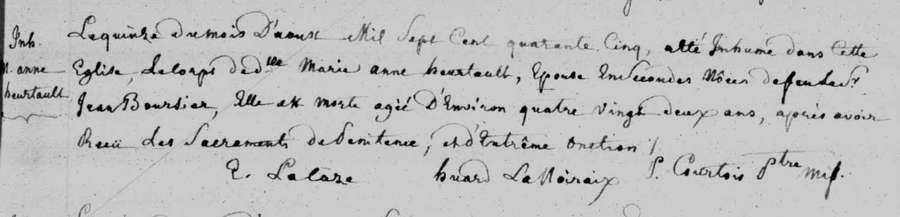 Inh.
M. anne
heurtault
Le quinze du mois D'aoust Mil Sept Cent quarante Cinq, atté Inhumé dans Cette
Eglise, Le Corps de dlle Marie anne heurtault, Epouse En Secondes Nôces de feu Le Sr.
Jean Boursier, Elle est morte agée D'Environ quatre vingt deux ans, après avoir
Reçu des Sacrements de Penitence, et d'Extrême onction /.
huard La Noiraix P. Courtois ptre mis.